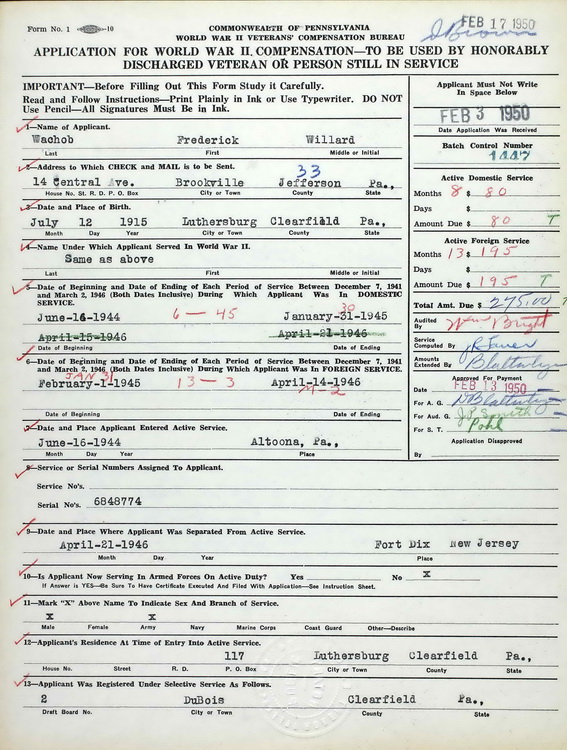 Form No. 1 10
COMMONWEALTH OF PENNSYLVANIA
WORLD WAR II VETERANS' COMPENSATION BUREAU
FEB 17 1950
APPLICATION FOR WORLD WAR II COMPENSATION—TO BE USED BY HONORABLY
DISCHARGED VETERAN OR PERSON STILL IN SERVICE
IMPORTANT—Before Filling Out This Form Study it Carefully.
Read and Follow Instructions—Print Plainly in Ink or Use Typewriter. DO NOT
Use Pencil—All Signatures Must be in Ink.
1—Name of Applicant.
Wachob Frederick Willard
Last First Middle or Initial
2—Address to Which CHECK and MAIL is to be Sent.
33
14 Central Ave. Brookville Jefferson Pa.,
House No. St. R.D. P.O. Box City or Town County State
3—Date and Place of Birth.
July 12 1915 Luthersburg Clearfield Pa.,
Month Day Year City or Town County State
4—Name Under Which Applicant Served In World War II.
Same as above
Last First Middle or Initial
5—Date of Beginning and Date of Ending of Each Period of Service Between December 7, 1941
and March 2, 1946 (Both Dates Inclusive) During Which Applicant Was In DOMESTIC
SERVICE.
30
June-16-1944 6 — 45 January-31-1945
April-15-1946 April-21-1946
Date of Beginning Date of Ending
6—Date of Beginning and Date of Ending of Each Period of Service Between December 7, 1941
and March 2, 1946 (Both Dates Inclusive) During Which Applicant Was In FOREIGN SERVICE.
JAN 31
February-1-1945 13 — 3 April-14-1946
M-2
Date of Beginning Date of Ending
7—Date and Place Applicant Entered Active Service.
June-16-1944 Altoona, Pa.,
Month Day Year Place
8—Service or Serial Numbers Assigned To Applicant.
Service No's.
Serial No's. 6848774
Applicant Must Not Write
In Space Below
FEB 3 1950
Date Application Was Received
Batch Control Number
1447
Active Domestic Service
Months 8 $ 80
Days $
Amount Due $ 80 T
Active Foreign Service
Months 13 $ 195
Days $
Amount Due $ 195 T
Total Amt. Due $ 275.00 T
Audited
By
Service
computed By
Amounts
Extended By
Approved For Payment
Date FEB 13 1950
For A. G.
For Aud. G. J.P. Smith
For S. T. Pohl
Application Disapproved
By
9—Date and Place Where Applicant Was Separated From Active Service.
April-21-1946 Fort Dix New Jersey
Month Day Year Place
10—Is Applicant Now Serving In Armed Forces On Active Duty? Yes No X
If Answer is YES—Be Sure To Have Certificate Executed And Filed With Application—See Instruction Sheet.
11—Mark "X" Above Name To Indicate Sex and Branch of Service.
X X
Male Female Army Navy Marine Corps Coast Guard Other—Describe
12—Applicant's Residence At Time of Entry Into Active Service.
117 Luthersburg Clearfield Pa.,
House No. Street R. D. P. O. Box City or Town County State
13—Applicant Was Registered Under Selective Service As Follows.
2 DuBois Clearfield Pa.,
Draft Board No. City or Town County State